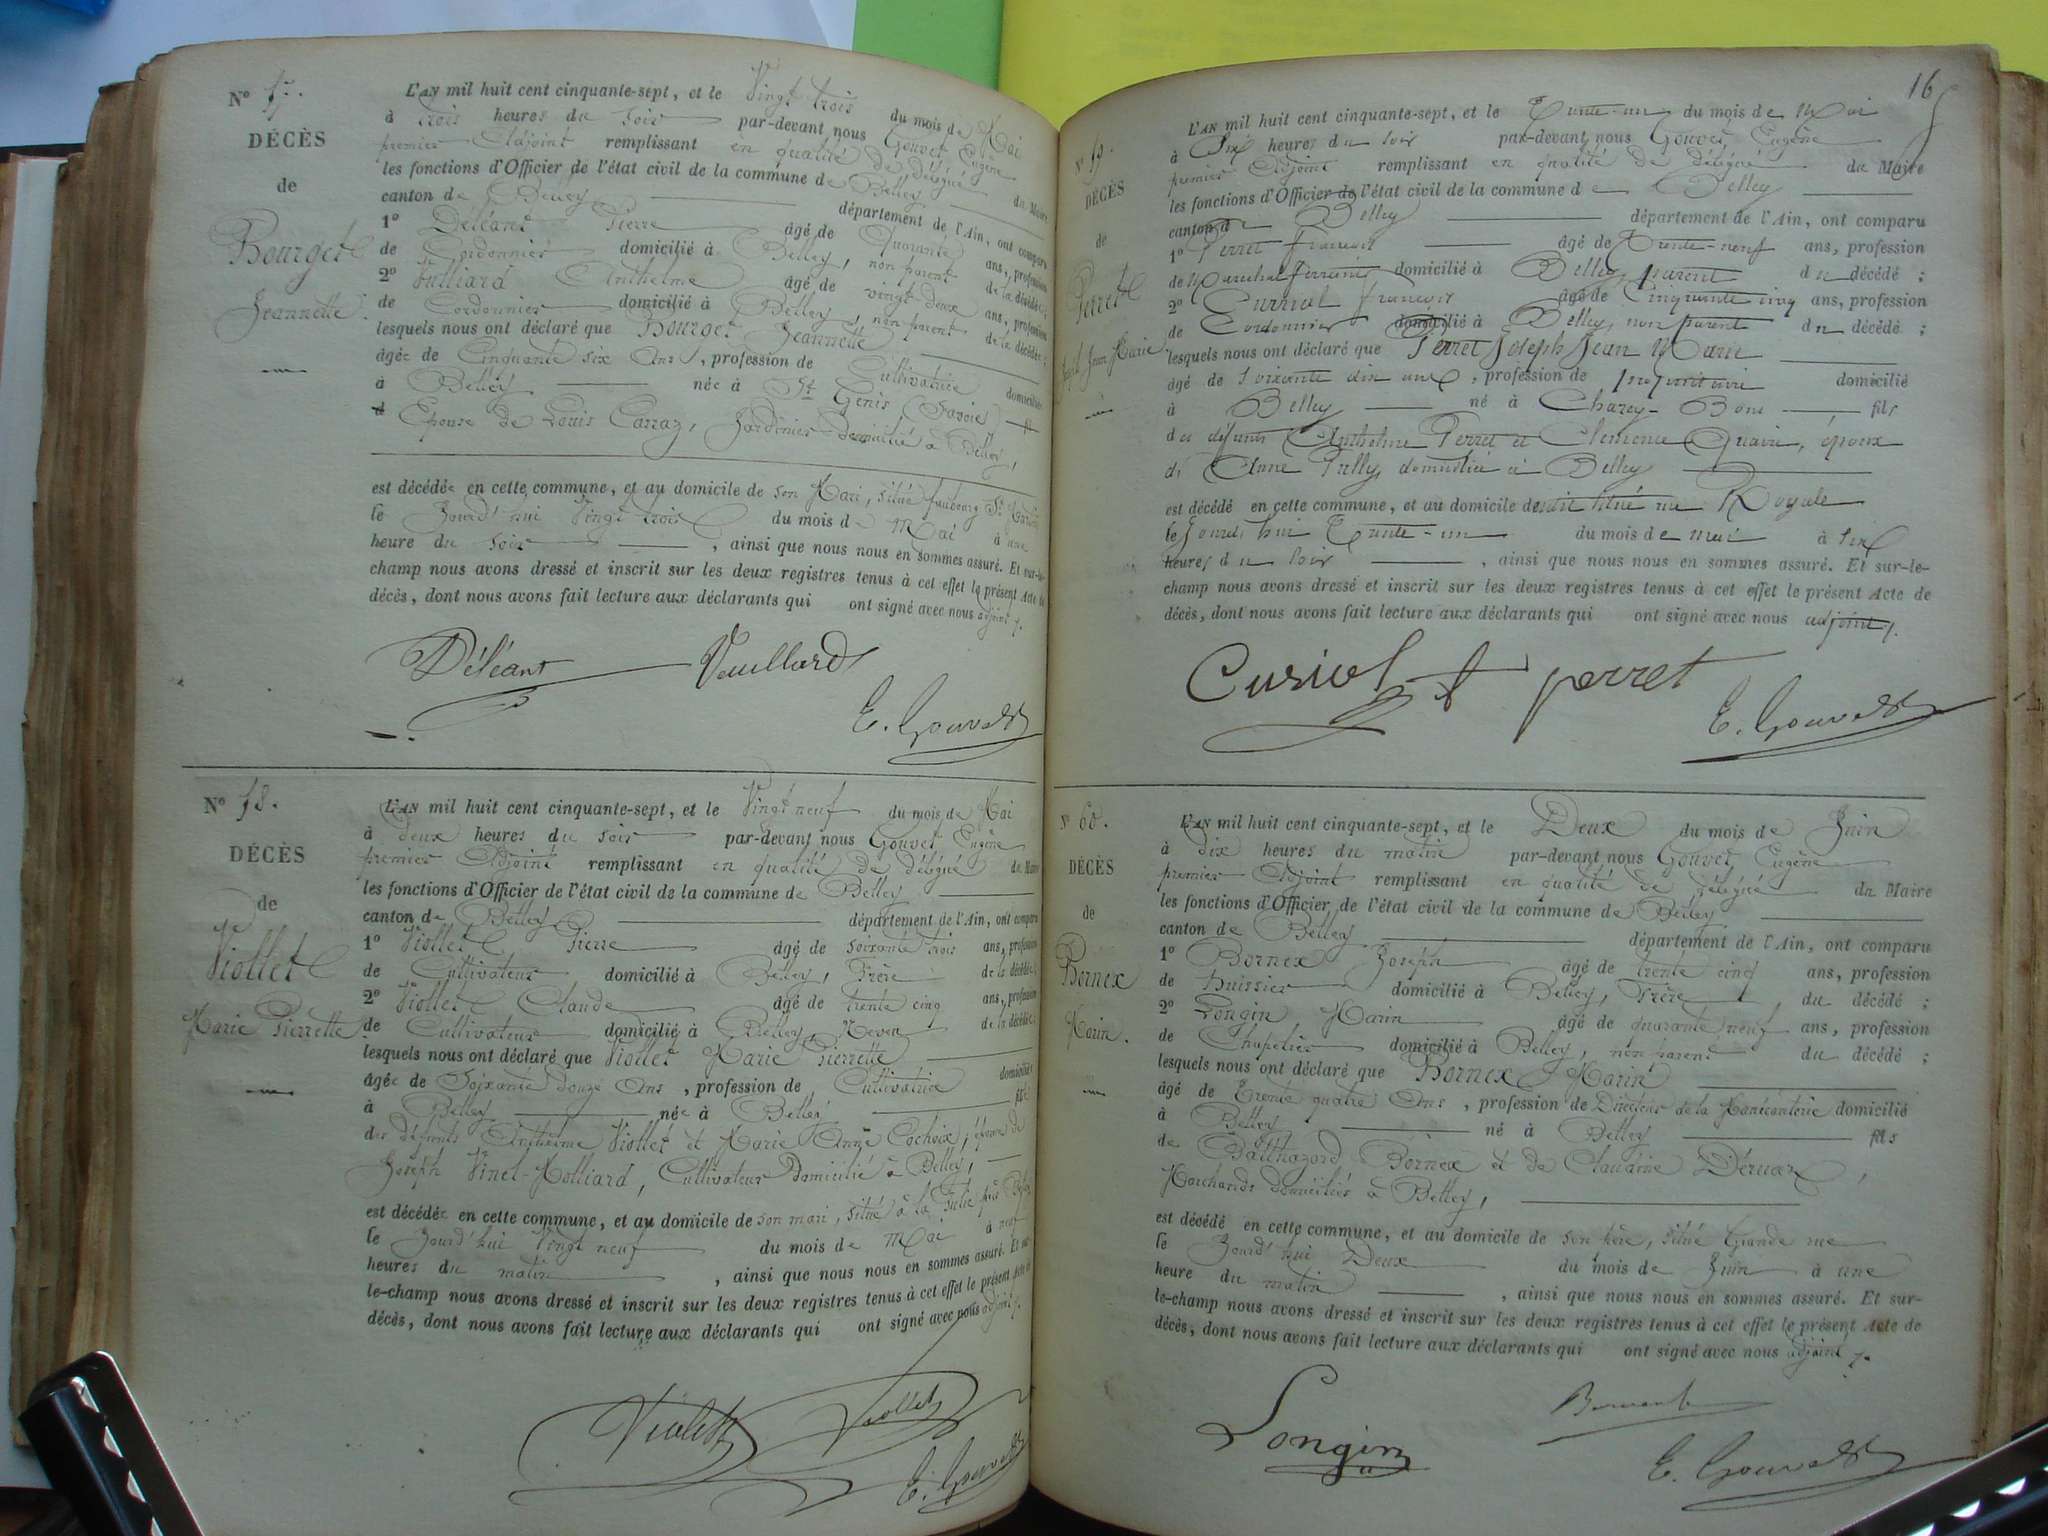 N° 57.
DÉCÈS
de
Bourget
Jeannette.
L'AN mil huit cent cinquante-sept, et le Vingt trois du mois de Mai
à trois heures du soir par-devant nous Gouvet Eugène
premier Adjoint remplissant en qualité de délégué du Maire
les fonctions d'Officier de l'état civil de la commune de Belley
canton de Belley département de l'Ain, ont comparu
1° Déléant Pierre âgé de Quarante ans, profession
de Cordonnier domicilié à Belley, non parent de la décédée;
2° Vulliard Anthelme âgé de vingt deux ans, profession
de Cordonnier domicilié à Belley, non parent de la décédée;
lesquels nous ont déclaré que Bourget Jeannette
âgée de Cinquante six Ans, profession de Cultivatrice domiciliée
à Belley née à St Genis (Savoie)
Epouse de Louis Carraz, Jardinier domicilié à Belley,
est décédée en cette commune, et au domicile de son Mari, situé faubourg St Martin
le Jourd'hui Vingt trois du mois de Mai à une
heure du soir, ainsi que nous nous en sommes assuré. Et sur-le-
champ nous avons dressé et inscrit sur les deux registres tenus à cet effet le présent Acte de
décès, dont nous avons fait lecture aux déclarants qui ont signé avec nous adjoint.
Déléant Vuilliard
E. Gouvet
N° 58.
DÉCÈS
de
Viollet
Marie Pierrette
L'AN mil huit cent cinquante-sept, et le Vingt neuf du mois de Mai
à deux heures du soir par-devant nous Gouvet Eugène
premier Adjoint remplissant en qualité de délégué du Maire
les fonctions d'Officier de l'état civil de la commune de Belley
canton de Belley département de l'Ain, ont comparu
1° Viollet Pierre âgé de soixante trois ans, profession
de Cultivateur domicilié à Belley, Frère de la décédée;
2° Viollet Claude âgé de trente cinq ans, profession
de Cultivateur domicilié à Belley, Neveu de la décédée;
lesquels nous ont déclaré que Viollet Marie Pierrette
âgée de Soixante douze Ans, profession de Cultivatrice domiciliée
à Belley née à Belley fille
des défunts Anthelme Viollet et Marie Anne Cochoix, épouse de
Joseph Vinet-Molliard, Cultivateur Domicilié à Belley,
est décédée en cette commune, et au domicile de son mari, situé à la
le Jourd'hui Vingt neuf du mois de Mai à neuf
heures du matin, ainsi que nous nous en sommes assuré. Et sur-
le-champ nous avons dressé et inscrit sur les deux registres tenus à cet effet le présent Acte de
décès, dont nous avons fait lecture aux déclarants qui ont signé avec nous adjoint.
Violet Viollet
E. Gouvet
16
N° 59.
DÉCÈS
de
Perret
Joseph Jean Marie
L'AN mil huit cent cinquante-sept, et le Trente-un du mois de Mai
à Six heures du soir par-devant nous Gouvet Eugène
premier Adjoint remplissant en qualité de délégué du Maire
les fonctions d'Officier de l'état civil de la commune de Belley
canton de Belley département de l'Ain, ont comparu
1° Perret François âgé de Trente-neuf ans, profession
de Maréchal ferrant domicilié à Belley, parent du décédé;
2° Curriol François âgé de Cinquante cinq ans, profession
de Cordonnier domicilié à Belley, non parent du décédé;
lesquels nous ont déclaré que Perret Joseph Jean Marie
âgé de soixante dix ans, profession de propriétaire domicilié
à Belley né à Charey-Bons fils
des défunts Anthelme Perret et Clémence Quaire, époux
de Anne Pully, domiciliée à Belley
est décédé en cette commune, et au domicile de situé rue Royale
le Jourd'hui Trente-un du mois de mai à six
heures du soir, ainsi que nous nous en sommes assuré. Et sur-le-
champ nous avons dressé et inscrit sur les deux registres tenus à cet effet le présent Acte de
décès, dont nous avons fait lecture aux déclarants qui ont signé avec nous adjoint.
Curiol f perret
E. Gouvet
N° 60.
DÉCÈS
de
Bornex
Marin.
L'AN mil huit cent cinquante-sept, et le Deux du mois de Juin
à dix heures du matin par-devant nous Gouvet Eugène
premier Adjoint remplissant en qualité de délégué du Maire
les fonctions d'Officier de l'état civil de la commune de Belley
canton de Belley département de l'Ain, ont comparu
1° Bornex Joseph âgé de trente cinq ans, profession
de huissier domicilié à Belley, Frère, du décédé;
2° Longin Marin âgé de quarante neuf ans, profession
de Chapelier domicilié à Belley, non parent du décédé;
lesquels nous ont déclaré que Bornex Marin
âgé de Trente quatre Ans, profession de Directeur de la Manécanterie domicilié
à Belley né à Belley fils
de Balthazard Bornex et de Claudine Déruaz,
Marchands domiciliés à Belley,
est décédé en cette commune, et au domicile de son Père, situé Grande rue
le Jourd'hui Deux du mois de Juin à une
heure du matin, ainsi que nous nous en sommes assuré. Et sur-
le-champ nous avons dressé et inscrit sur les deux registres tenus à cet effet le présent Acte de
décès, dont nous avons fait lecture aux déclarants qui ont signé avec nous adjoint.
Longin
E. Gouvet